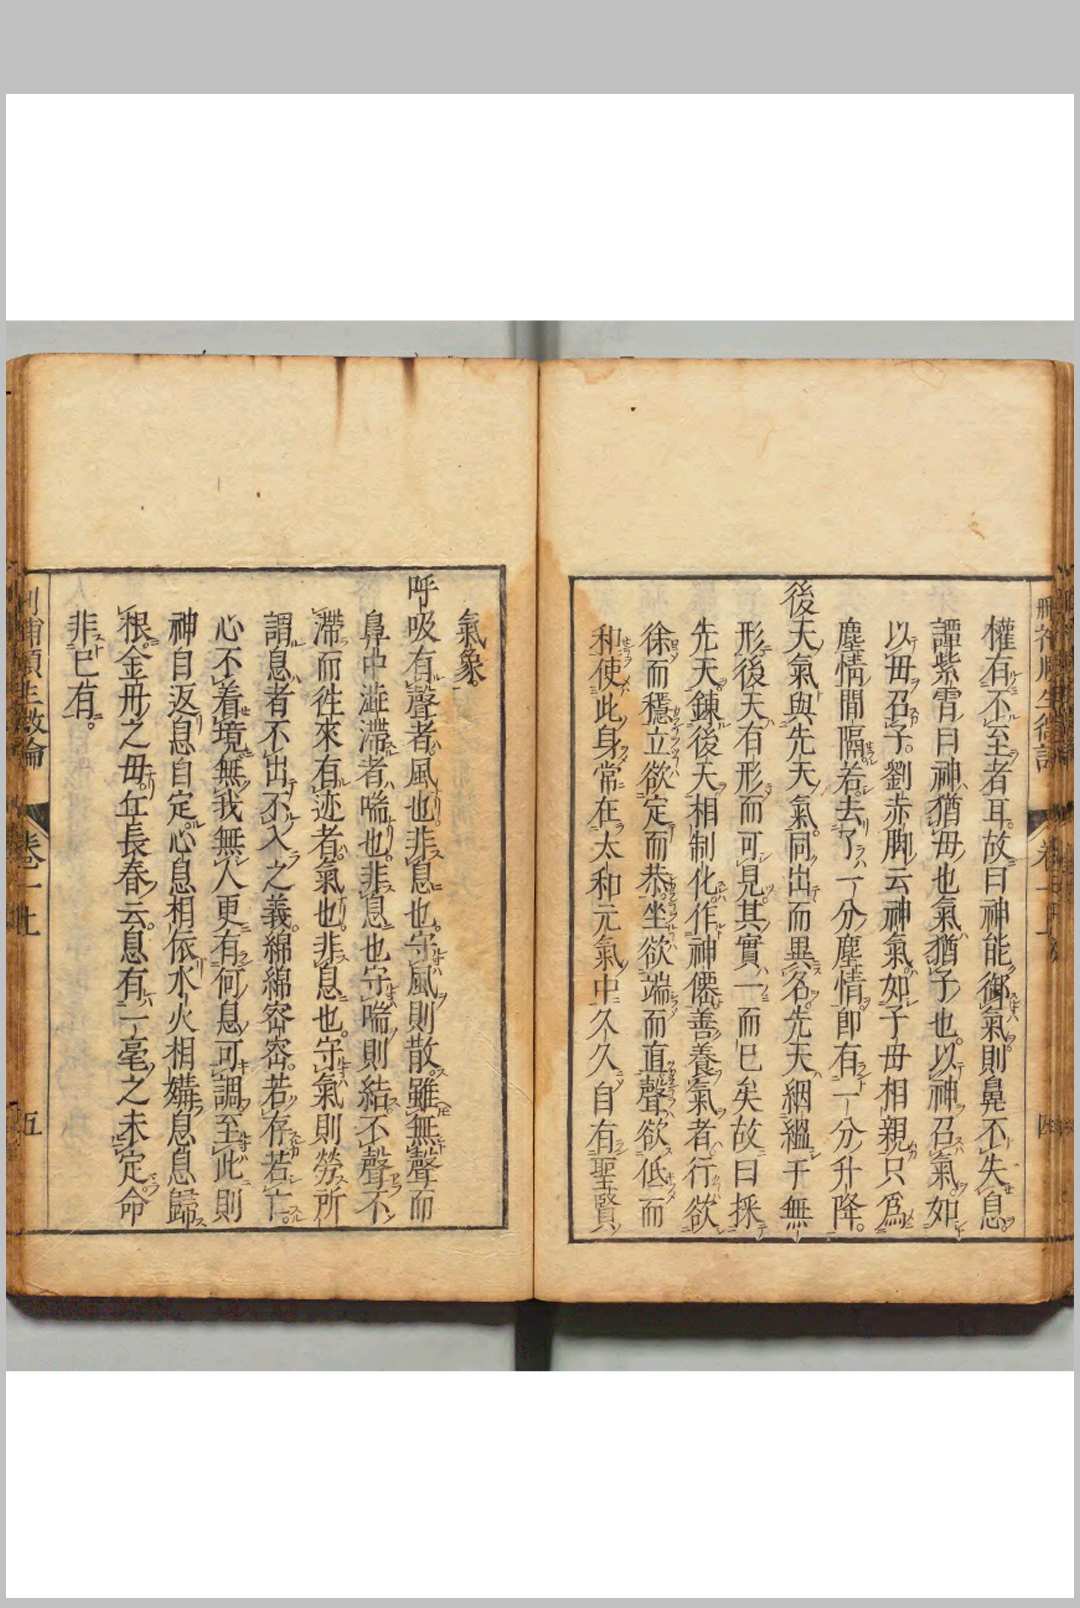 權有不云至者耳故曰神能御氣則鼻不失息
譚紫霄曰神猶母也氣猶子也以神召氣如
以母召子。劉赤脚云神氣如子母相親只爲
塵情間隔若去了一分塵情卽有一分升降。
後天氣與先天氣同出而異名先天絪縕于無
形後天有形而可見其實一而已矣故曰採
先天鍊後天相制化作神僊善養氣者行欲
徐而穩立欲定而恭坐欲端而直聲欲低而
和使此身常在太和元氣中久久自有聖賢
氣象。
呼吸有聲者風也非息也。守風則散。雖無聲而
鼻中澁滯者喘也非息也守喘則結不聲不
滯而徃來有迹者氣也非息也。守氣則勞所
謂息者不出不入之義綿綿宻宻若存若亡。
心不着境無我無人更有何息可調至此則
神自返息自定心息相依水火相媾息息歸
根。金丹之母。丘長春云息有一毫之未定命
非已有。
卷一上
五